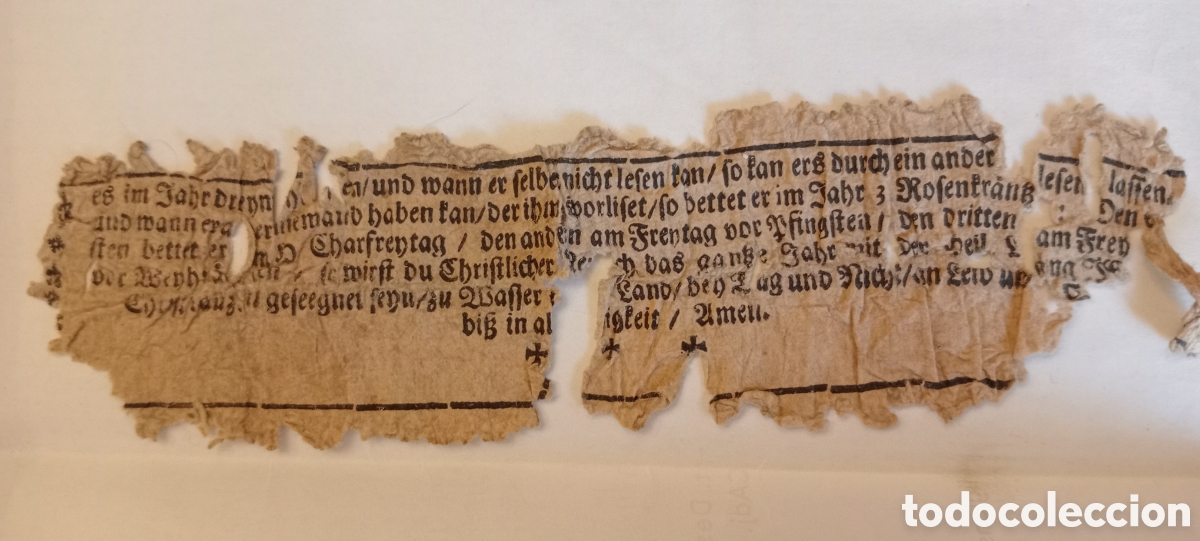 es im Jahr dreyn en/ und wann er selber nicht lesen kan/ so kan ers durch ein ander lesen lassen.
und wann er niemand haben kan/ der ihms vorliset/ so bettet er im Jahr 3 Rosenkräntz : Den
sten bettet er Charfreytag / den andern am Freytag vor Pfingsten / den dritten am Frey
vor Weyh wirst du Christlicher das gantze Jahr mit der Heil.
geseegnet seyn/ zu Wasser Land/ bey Tag und Nicht/ an Leib un
biß in al igkeit / Amen.
✠ ✠ ✠
todocoleccion